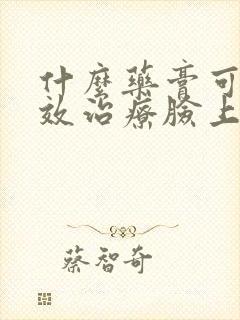 什麼藥膏可
效治療臉上
蔡智奇